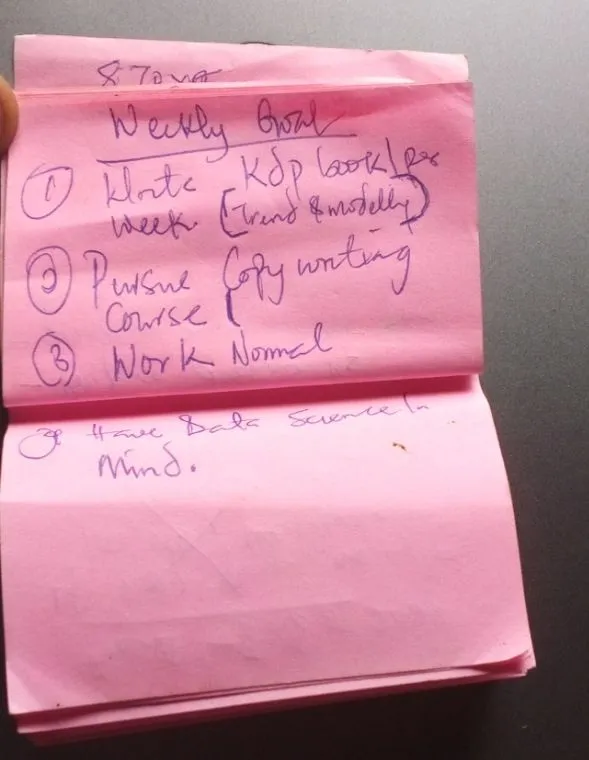 Weekly Goal
① Write Kdp book/per
week. [Trend & modelly]
② Pursue Copy writing
Course
③ Work Normal
Have Data Science In
Mind.